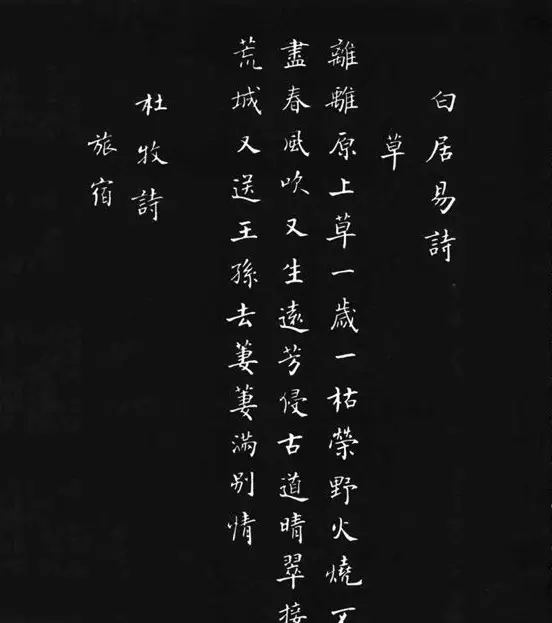 白居易詩
草
離離原上草一歲一枯榮野火燒不
盡春風吹又生遠芳侵古道晴翠接
荒城又送王孫去萋萋滿別情
杜牧詩
旅宿